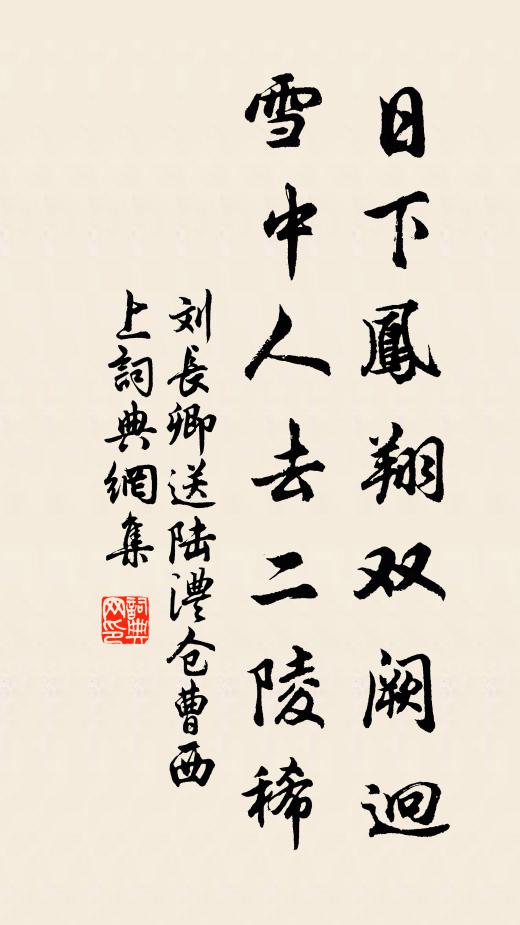 日下鳳翔双阙迥
雪中人去二陵稀
刘長卿送陆澧仓曹西
上詞典網集
詞典
网印